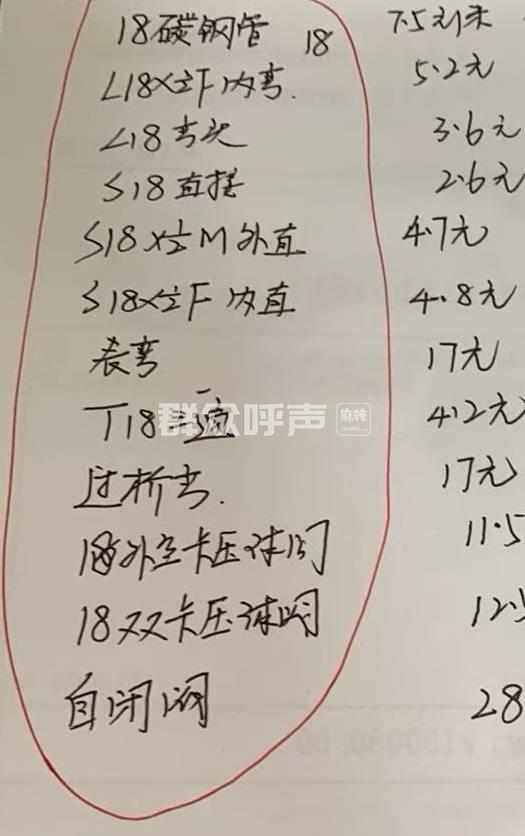 18碳钢管 18 7.5元/米
L18×½F内弯. 5.2元
L18弯头 3.6元
S18直接 2.6元
S18×½M外直 4.7元
S18×½F内直 4.8元
表弯 17元
T18三通 4.2元
群众呼声 麻辣
过桥弯. 17元
18外丝卡压球阀 11.5
18双卡压球阀 12.5
自闭阀 28